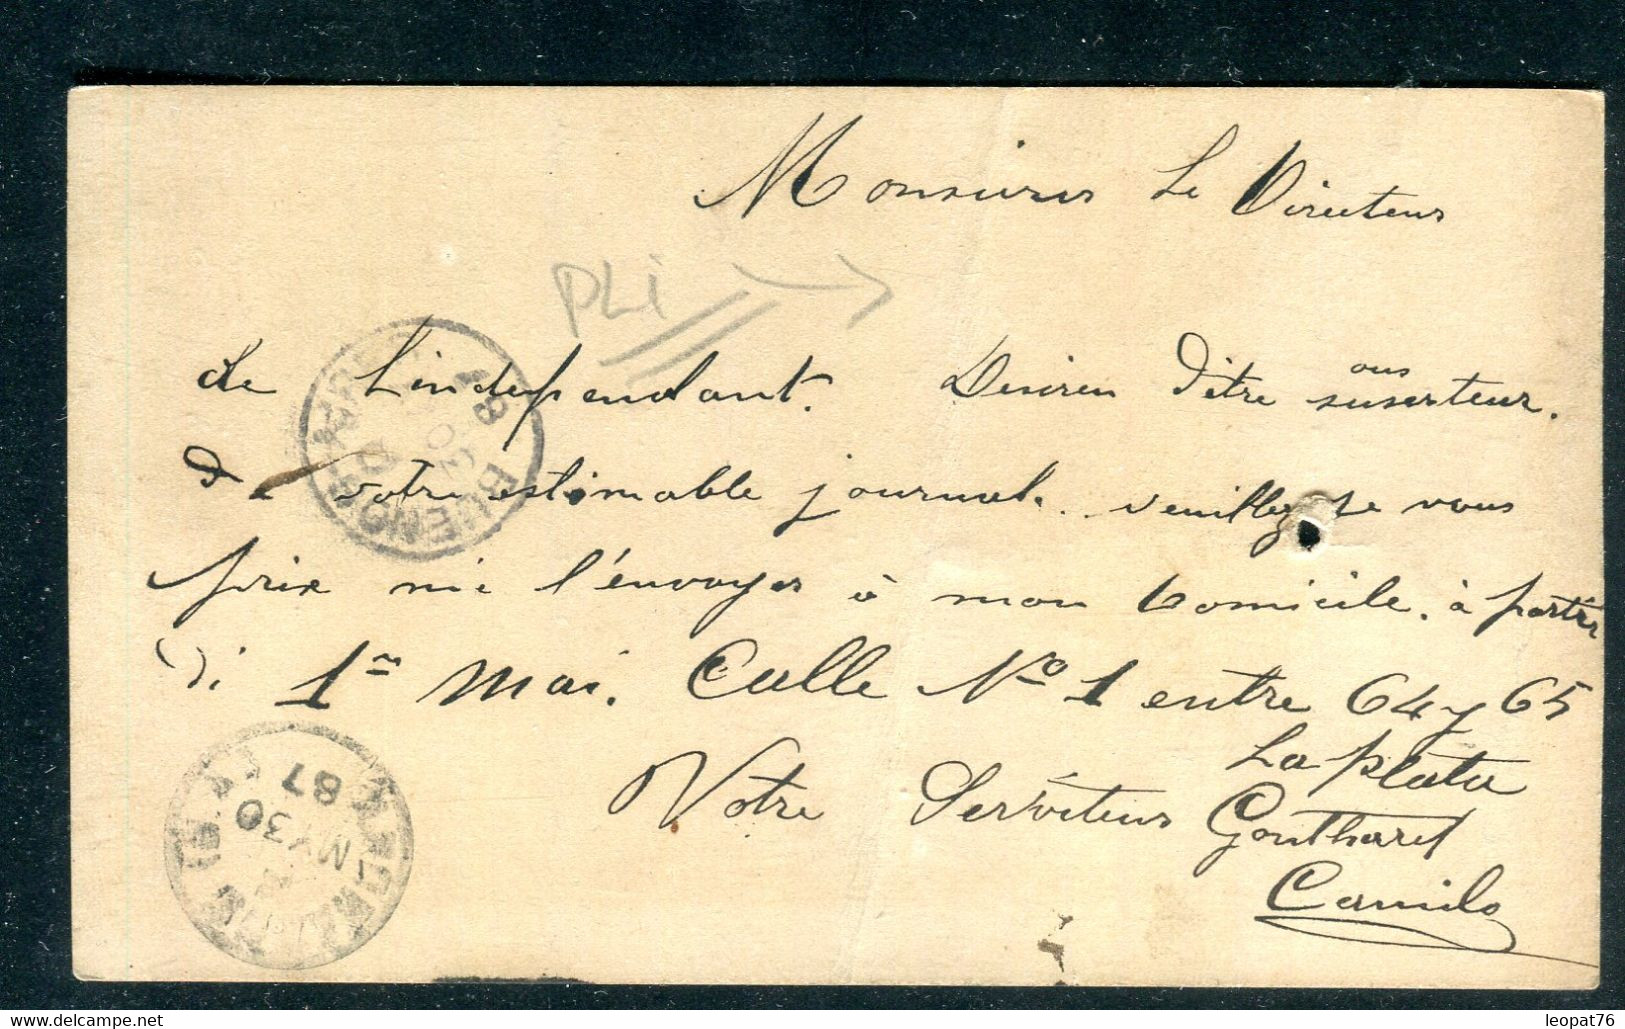 Monsieur Le Directeur
PLi
de L'independant. Desireu d'être souuscrteur.
De votre estimable journal. veuillez je vous
prix me l'envoyer à mon Domicile. à partir
Di 1er Mai. Calle No 1 entre 64 y 65
La plata
Votre Serviteur Gontharet
Camilo
87
BUENOS AIRES
MY 30
87
delcampe.net
leopat76